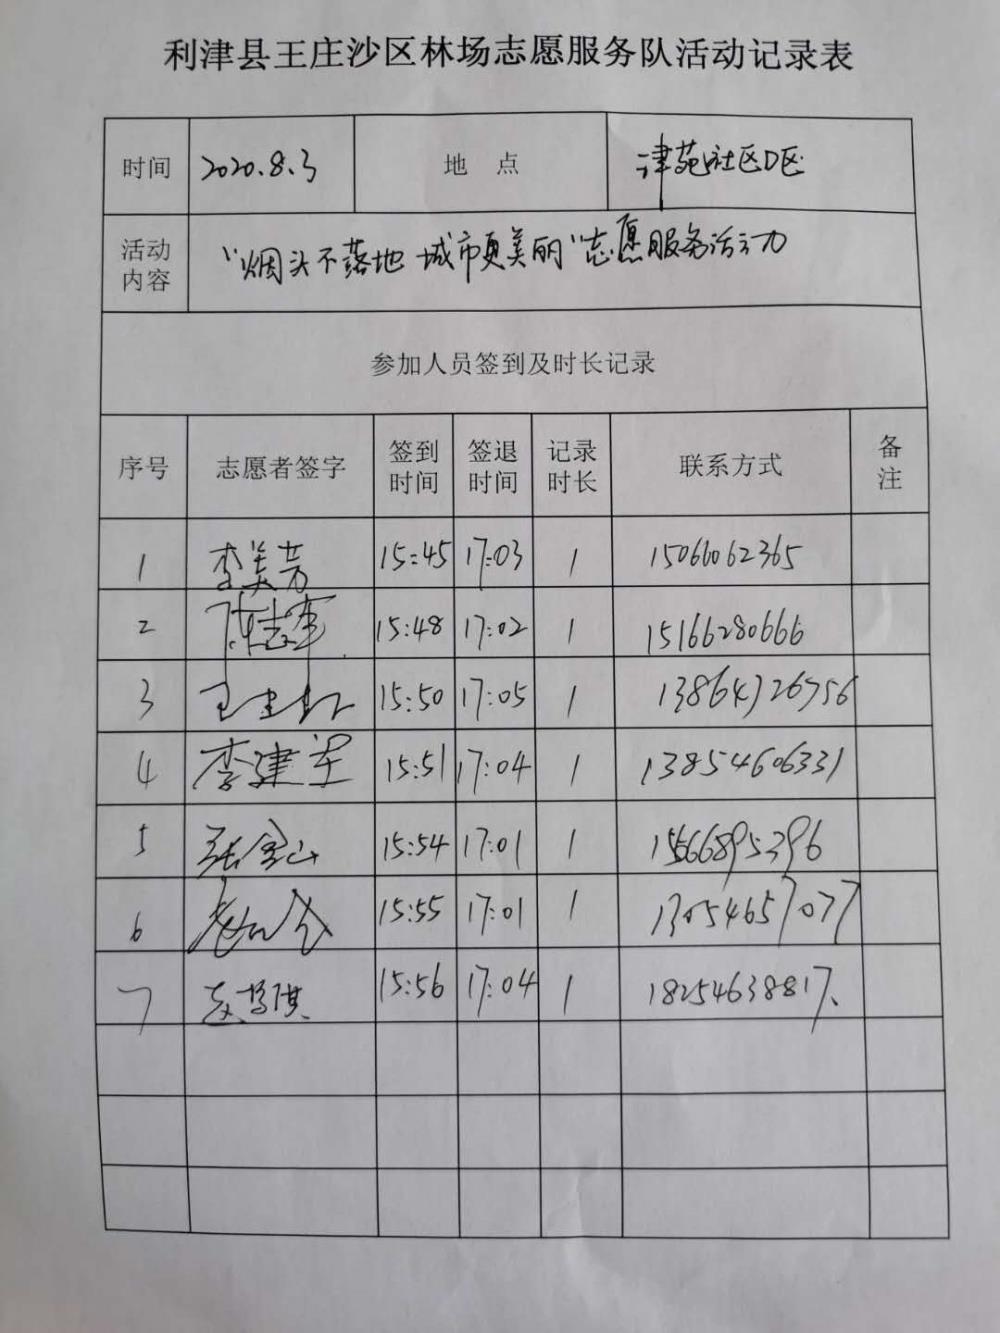 利津县王庄沙区林场志愿服务队活动记录表
时间 2020.8.3 地 点 津苑社区D区
活动内容 “烟头不落地 城市更美丽”志愿服务活动
参加人员签到及时长记录
序号 志愿者签字 签到时间 签退时间 记录时长 联系方式 备注
1 李美芳 15:45 17:03 1 15066062365
2 陈志军 15:48 17:02 1 15166280666
3 15:50 17:05 1 13864726756
4 李建军 15:51 17:04 1 13854606331
5 张金山 15:54 17:01 1 15666895396
6 15:55 17:01 1 13054657077
7 15:56 17:04 1 18254638817